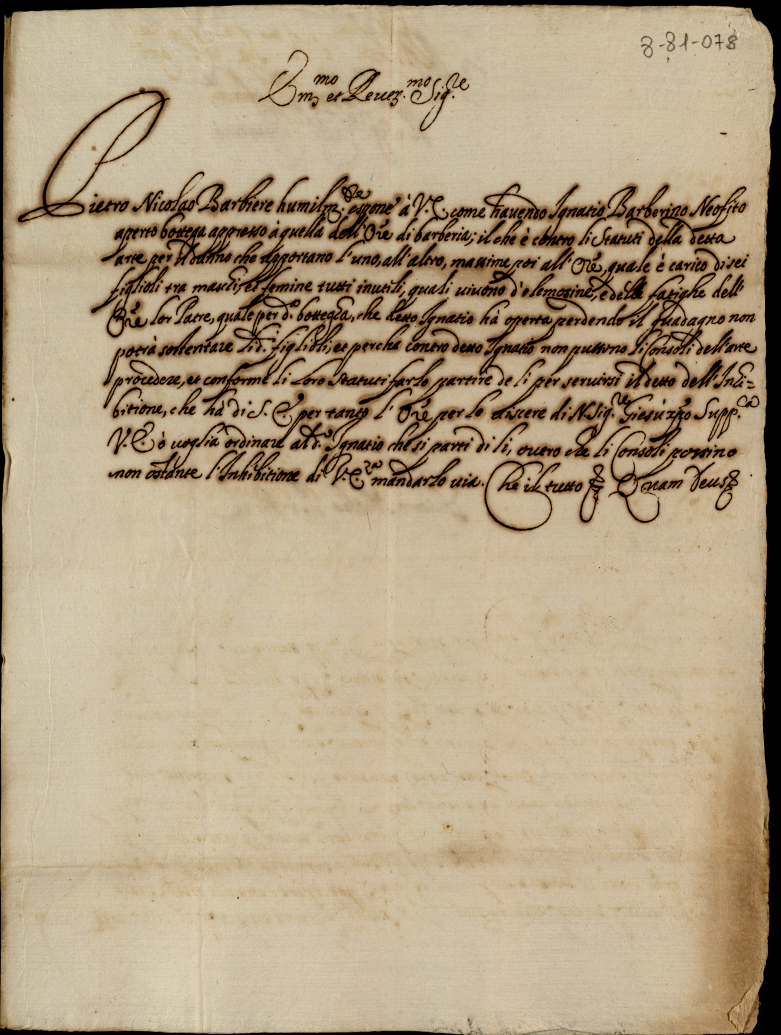 8-81-078
Em.mo et Rever.mo Sig.re
Pietro Nicolao Barbiere humilm.te espone à V.E. come havendo Ignatio Barberino Neofito
aperto bottega appresso à quella dell'Ore di barberia; il che è contro li Statuti della detta
arte per il danno che apportano l'uno, all'altro, massime poi all'Ore, quale è carico di sei
figlioli tra mascoli, et femine tutti inutili, quali vivono d'elemosine, e delle fatighe dell'
Ore lor Patre, quale per d.a bottega, che detto Ignatio hà operta perdendo il guadagno non
potrà sostentare li d.i figlioli, et perche contro detto Ignatio non possono li Consoli dell'arte
procedere, et conforme li loro statuti farlo partire de li per servirsi il detto dell'Ini-
bitione, che hà di S.E. per tanto l'Ore per le viscere di N. Sig.re Giesù xpo Supp.ca
V.E. ò voglia ordinare al d.o Ignatio che si parti di li, overo che li Consoli possino
non ostante l'Inhibitione di V.E.za mandarlo via. Che il tutto Quam Deus